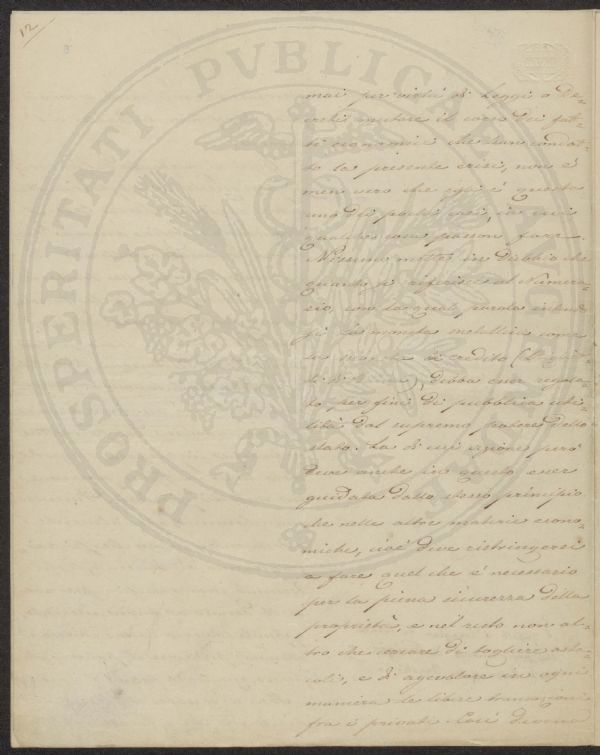 12
PROSPERITATI PVBLICAE
mai per virtù di Leggi o De-
creti mutare il corso dei fat-
ti economici che han condot-
to la presente crisi, non è
men vero che egli è questo
uno dei pochi casi, in cui
qualche cosa posson fare.
Nessuno mette in dubbio che
quanto si riferisce al Numera-
rio, con la qual parola intendo
la moneta metallica come
di credito
debba esser regola-
to per fini di pubblica uti-
lità dal supremo potere dello
stato. La di cui azione però
deve anche in questo esser
guidata dallo stesso principio
che nelle altre materie econo-
miche, cioè deve ristringersi
a fare quel che è necessario
per la piena sicurezza della
proprietà, e nel resto non al-
tro che cercare di togliere osta-
coli, e di agevolare in ogni
maniera le libere transazioni
fra i privati. Così